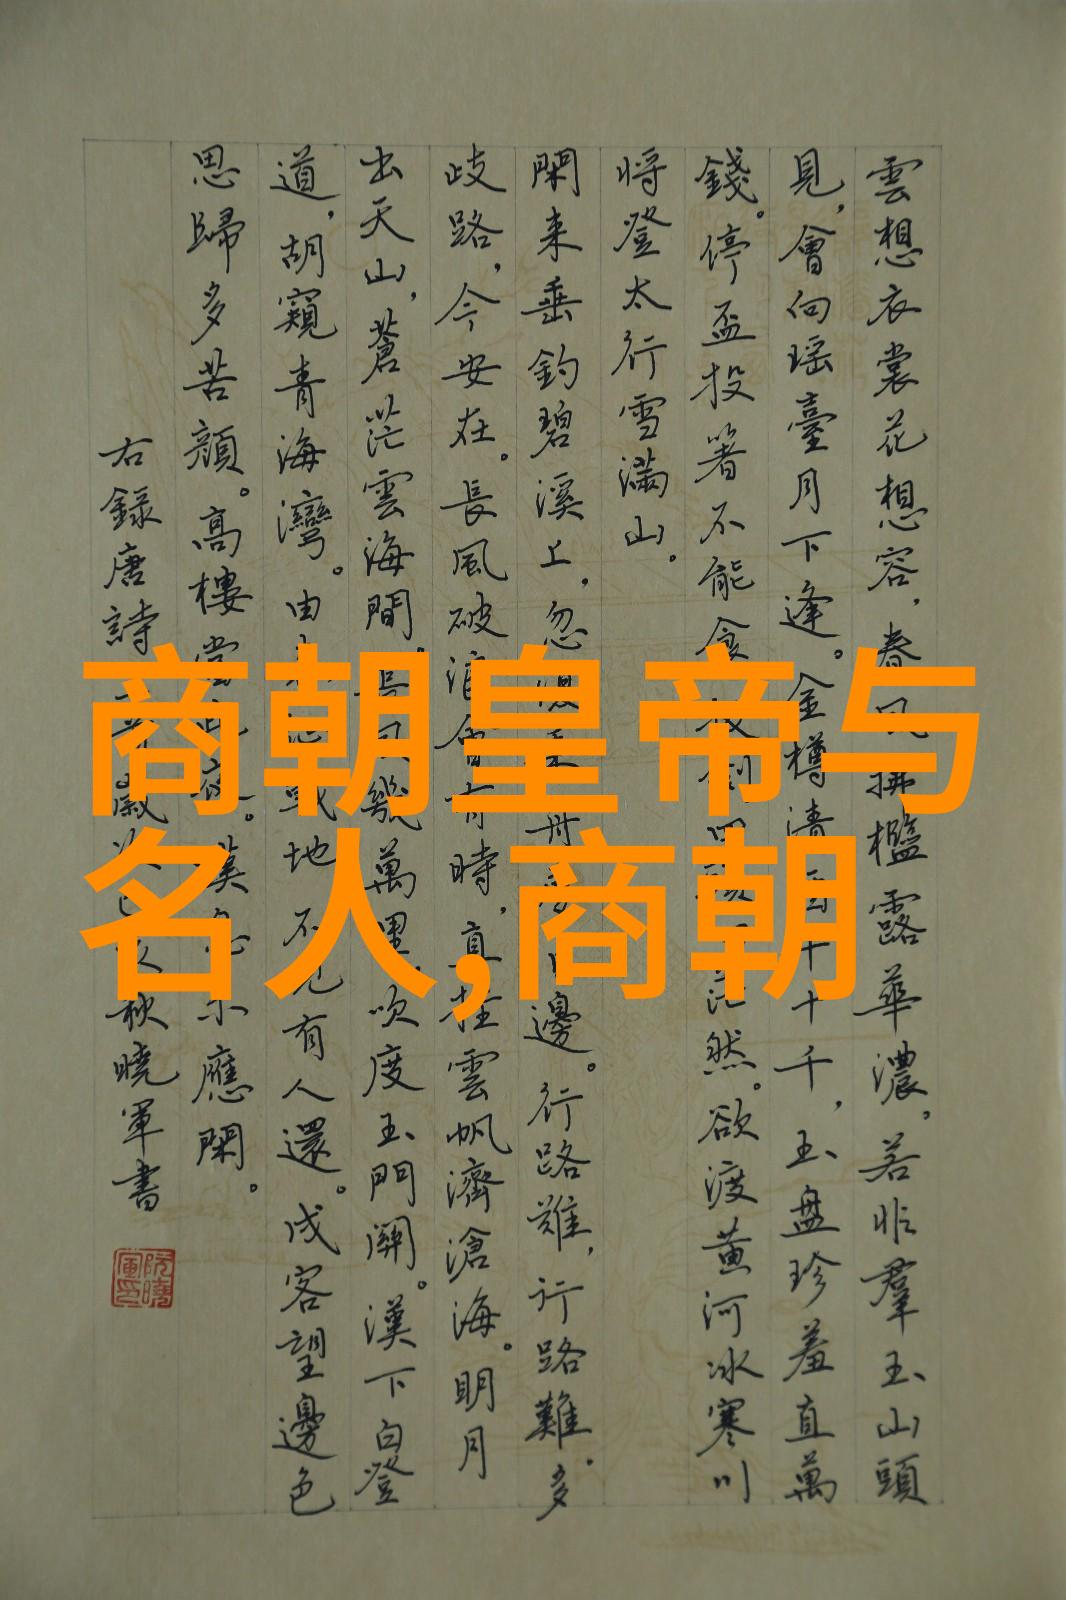 商朝皇帝与
名人,商朝
雲想衣裳花想容,春風拂檻露華濃。若非羣玉山頭
見,會向瑶臺月下逢。金樽清十千,玉盤珍羞直萬
錢。停盃投箸不能食茫然。欲渡黄河冰寒川
將登太行雪滿山。
閑来垂釣碧溪上,忽復舟邊。行路難,行路難。多
歧路,今安在。長風破浪會有時,直挂雲帆濟滄海。明月
出天山,蒼茫雲海間。長風幾萬里,吹度玉門關。漢下白登
道,胡窺青海灣。由戰地不見有人還。戍客望邊色
思歸多苦顏。高樓當此夜。嘆息未應閑。
右録唐詩歲秋曉軍書
阮曉軍印